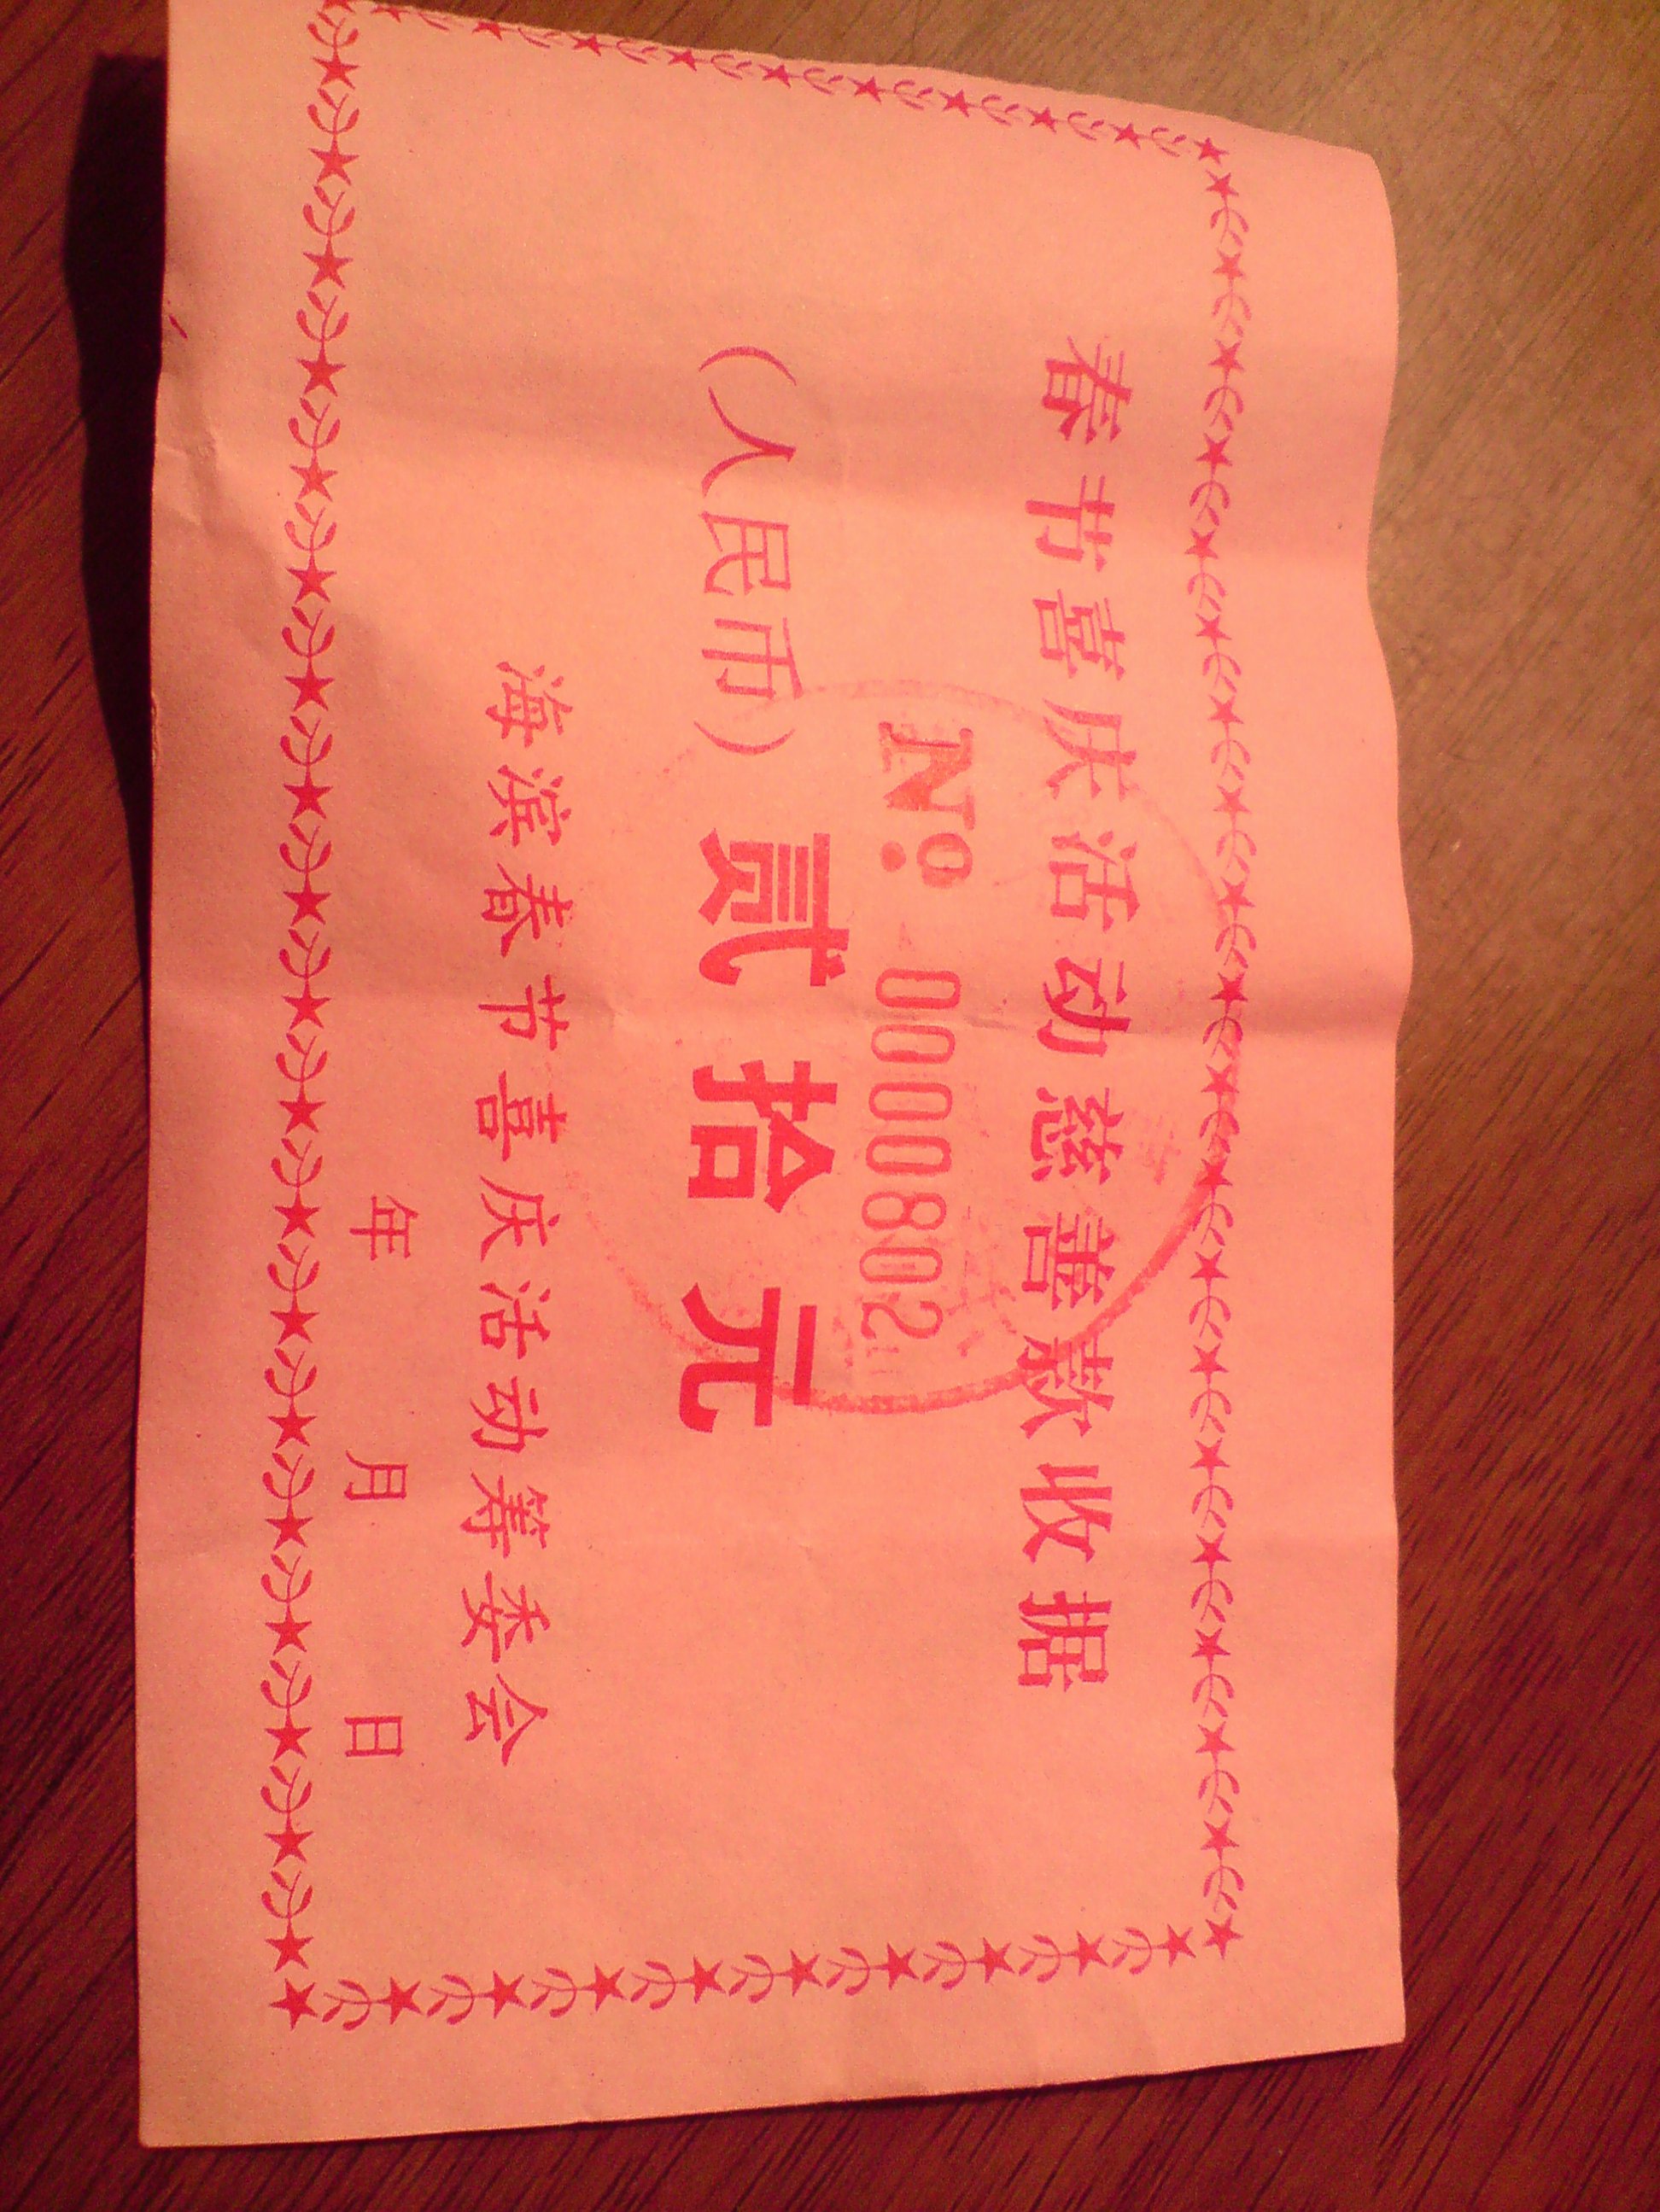 春节喜庆活动慈善款收据
№ 0000802
（人民币）贰拾元
海滨春节喜庆活动筹委会
年 月 日